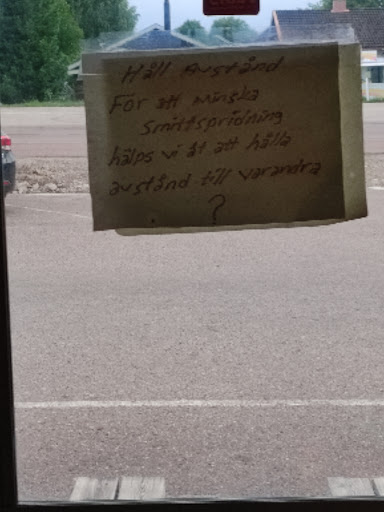 Håll Avstånd
För att minska
Smittspridning
hälps vi åt att hålla
avstånd till varandra
?